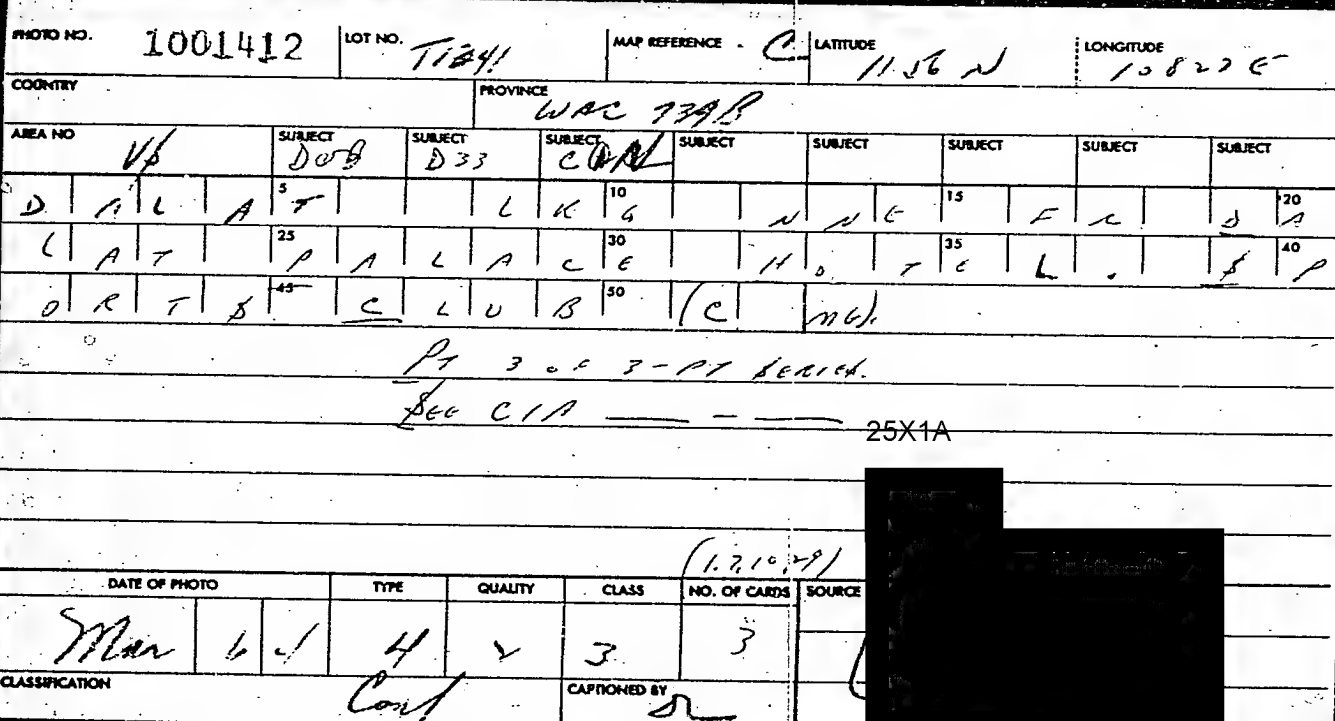 PHOTO NO. 1001412 LOT NO. MAP REFERENCE - C LATITUDE 11 56 N LONGITUDE 108 27 E
COUNTRY PROVINCE WAC 739B
AREA NO V$ SUBJECT SUBJECT D33 SUBJECT SUBJECT SUBJECT SUBJECT SUBJECT SUBJECT
D A L A 5 T L K 10 G N N E 15 F R D 20 A
L A T 25 P A L A C 30 E H O T 35 E L . $ 40 P
O R T $ 45 C L U B 50 (C MG).
PT 3 OF 3-PT $ERIE$.
$EE CIA ___ - ___
25X1A
(1.7,10,29)
DATE OF PHOTO TYPE QUALITY CLASS NO. OF CARDS SOURCE
Mar 6 4 3 3
CLASSIFICATION Conf CAPTIONED BY